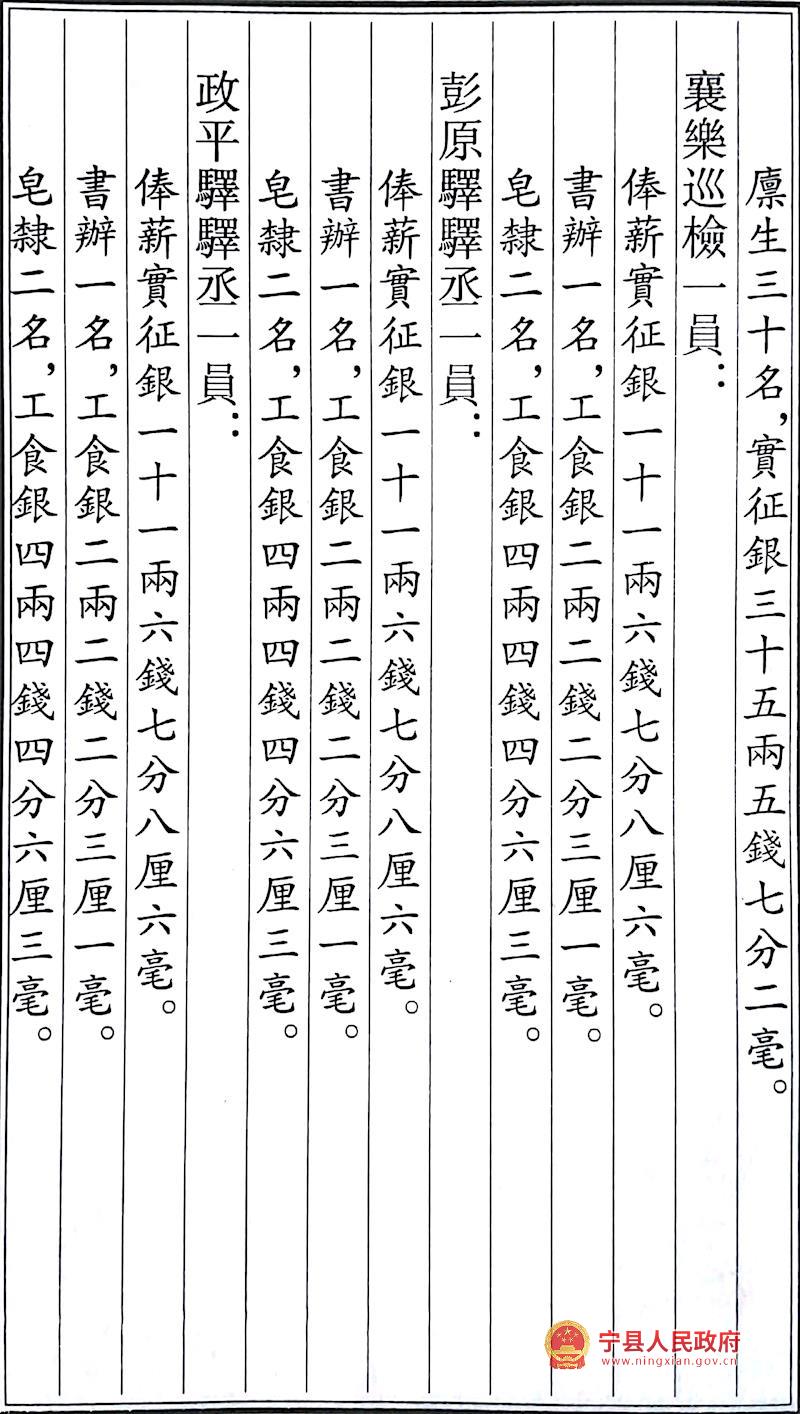 廪生三十名，實征銀三十五兩五錢七分二毫。
襄樂巡檢一員：
俸薪實征銀一十一兩六錢七分八厘六毫。
書辦一名，工食銀二兩二錢二分三厘一毫。
皂隸二名，工食銀四兩四錢四分六厘三毫。
彭原驛驛丞一員：
俸薪實征銀一十一兩六錢七分八厘六毫。
書辦一名，工食銀二兩二錢二分三厘一毫。
皂隸二名，工食銀四兩四錢四分六厘三毫。
政平驛驛丞一員：
俸薪實征銀一十一兩六錢七分八厘六毫。
書辦一名，工食銀二兩二錢二分三厘一毫。
皂隸二名，工食銀四兩四錢四分六厘三毫。
宁县人民政府
www.ningxian.gov.cn